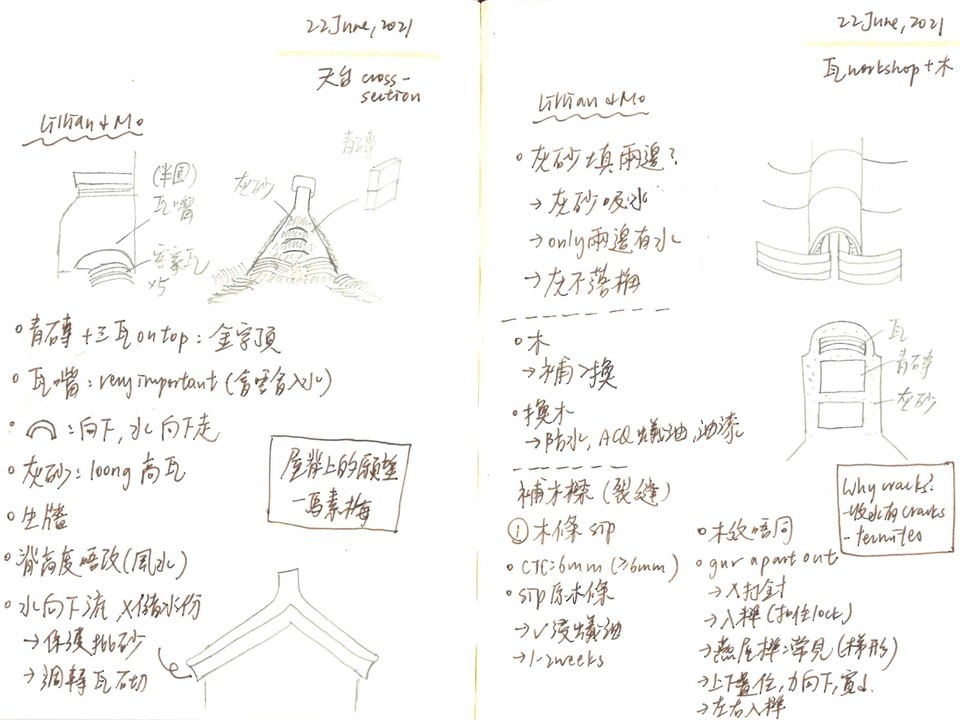 22 June, 2021
天台 cross-
section
Lillian & Mo
(半圓)
瓦嘴
瓦
x5
灰砂
青磚
青磚 + 三瓦 on top : 金字頂
瓦嘴 : very important (會唔會入水)
: 向下, 水向下走
灰砂 : loong 高瓦
生牆
脊高度唔改 (風水)
水向下流, x儲水份
→ 保護批砂
→ 調轉瓦砌
屋脊上的願望
- 馬素梅
22 June, 2021
瓦 workshop + 木
Lillian & Mo
灰砂填兩邊?
→ 灰砂吸水
→ only 兩邊有水
→ 灰不落桷
木
→ 補 > 換
換木
→ 防水, ACQ 蟻油, 油漆
瓦
青磚
灰砂
補木樑 (裂縫)
① 木條 stp
CTC : 6mm (≥6mm)
stp 原木條
→ √ 浸蟻油
→ 1-2 weeks
Why cracks?
- 收水有 cracks
- termites
木紋唔同
gur apart out
→ 入打針
→ 入榫 (扣住 lock)
→ 燕尾榫 : 常見 (梯形)
→ 上下疊位, 力向下,
→ 左右入榫